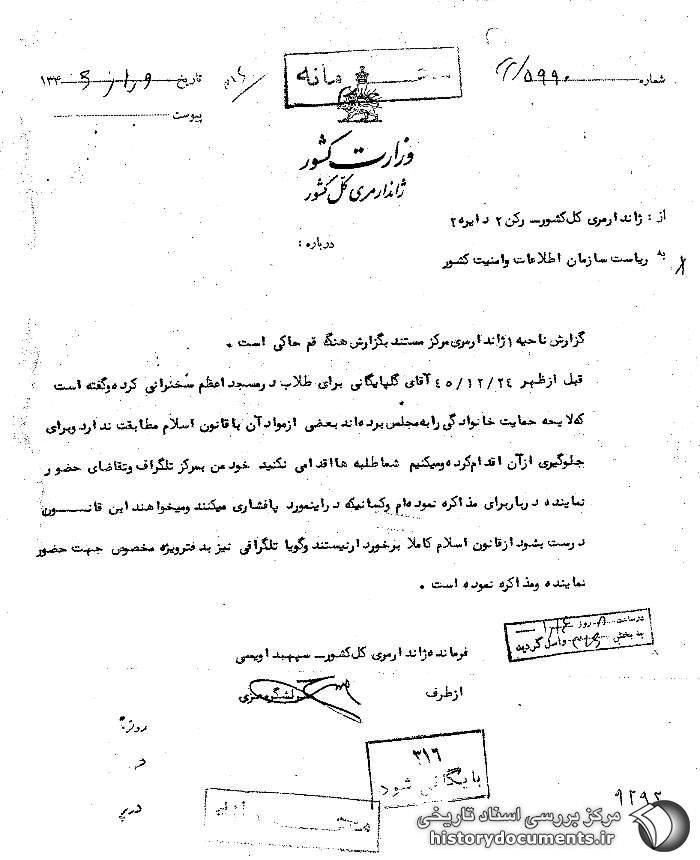 شماره ۵۹۹۰
محرمانه
تاریخ ۱۳۴
پیوست
وزارت کشور
ژاندارمری کل کشور
از : ژاندارمری کل کشور ـ رکن ۲ دایره ۲
درباره :
به ریاست سازمان اطلاعات و امنیت کشور
گزارش ناحیه ۱ ژاندارمری مرکز مستند بگزارش هنگ قم حاکی است .
قبل از ظهر ۴۵/۱۲/۲۴ آقای گلپایگانی برای طلاب در مسجد اعظم سخنرانی کرده و گفته است
که لایحه حمایت خانوادگی را به مجلس برده اند بعضی از مواد آن با قانون اسلام مطابقت ندارد و برای
جلوگیری از آن اقدام کرده و میکنیم شما طلبه ها اقدامی نکنید خود من بمرکز تلگراف و تقاضای حضور
نماینده دربار برای مذاکره نموده ام و کسانیکه در اینمورد پافشاری میکنند و میخواهند این قانـــون
درست بشود از قانون اسلام کاملا برخوردار نیستند و گویا تلگرافی نیز بدفتر ویژه مخصوص جهت حضور
نماینده و مذاکره نموده است .
در ساعت ۸ روز
به بخش واصل گردید
فرمانده ژاندارمری کل کشور ـ سپهبد اویسی
از طرف
۳۱۶
بایگانی شود
۹۲۹۲
مرکز بررسی اسناد تاریخی
historydocuments.ir